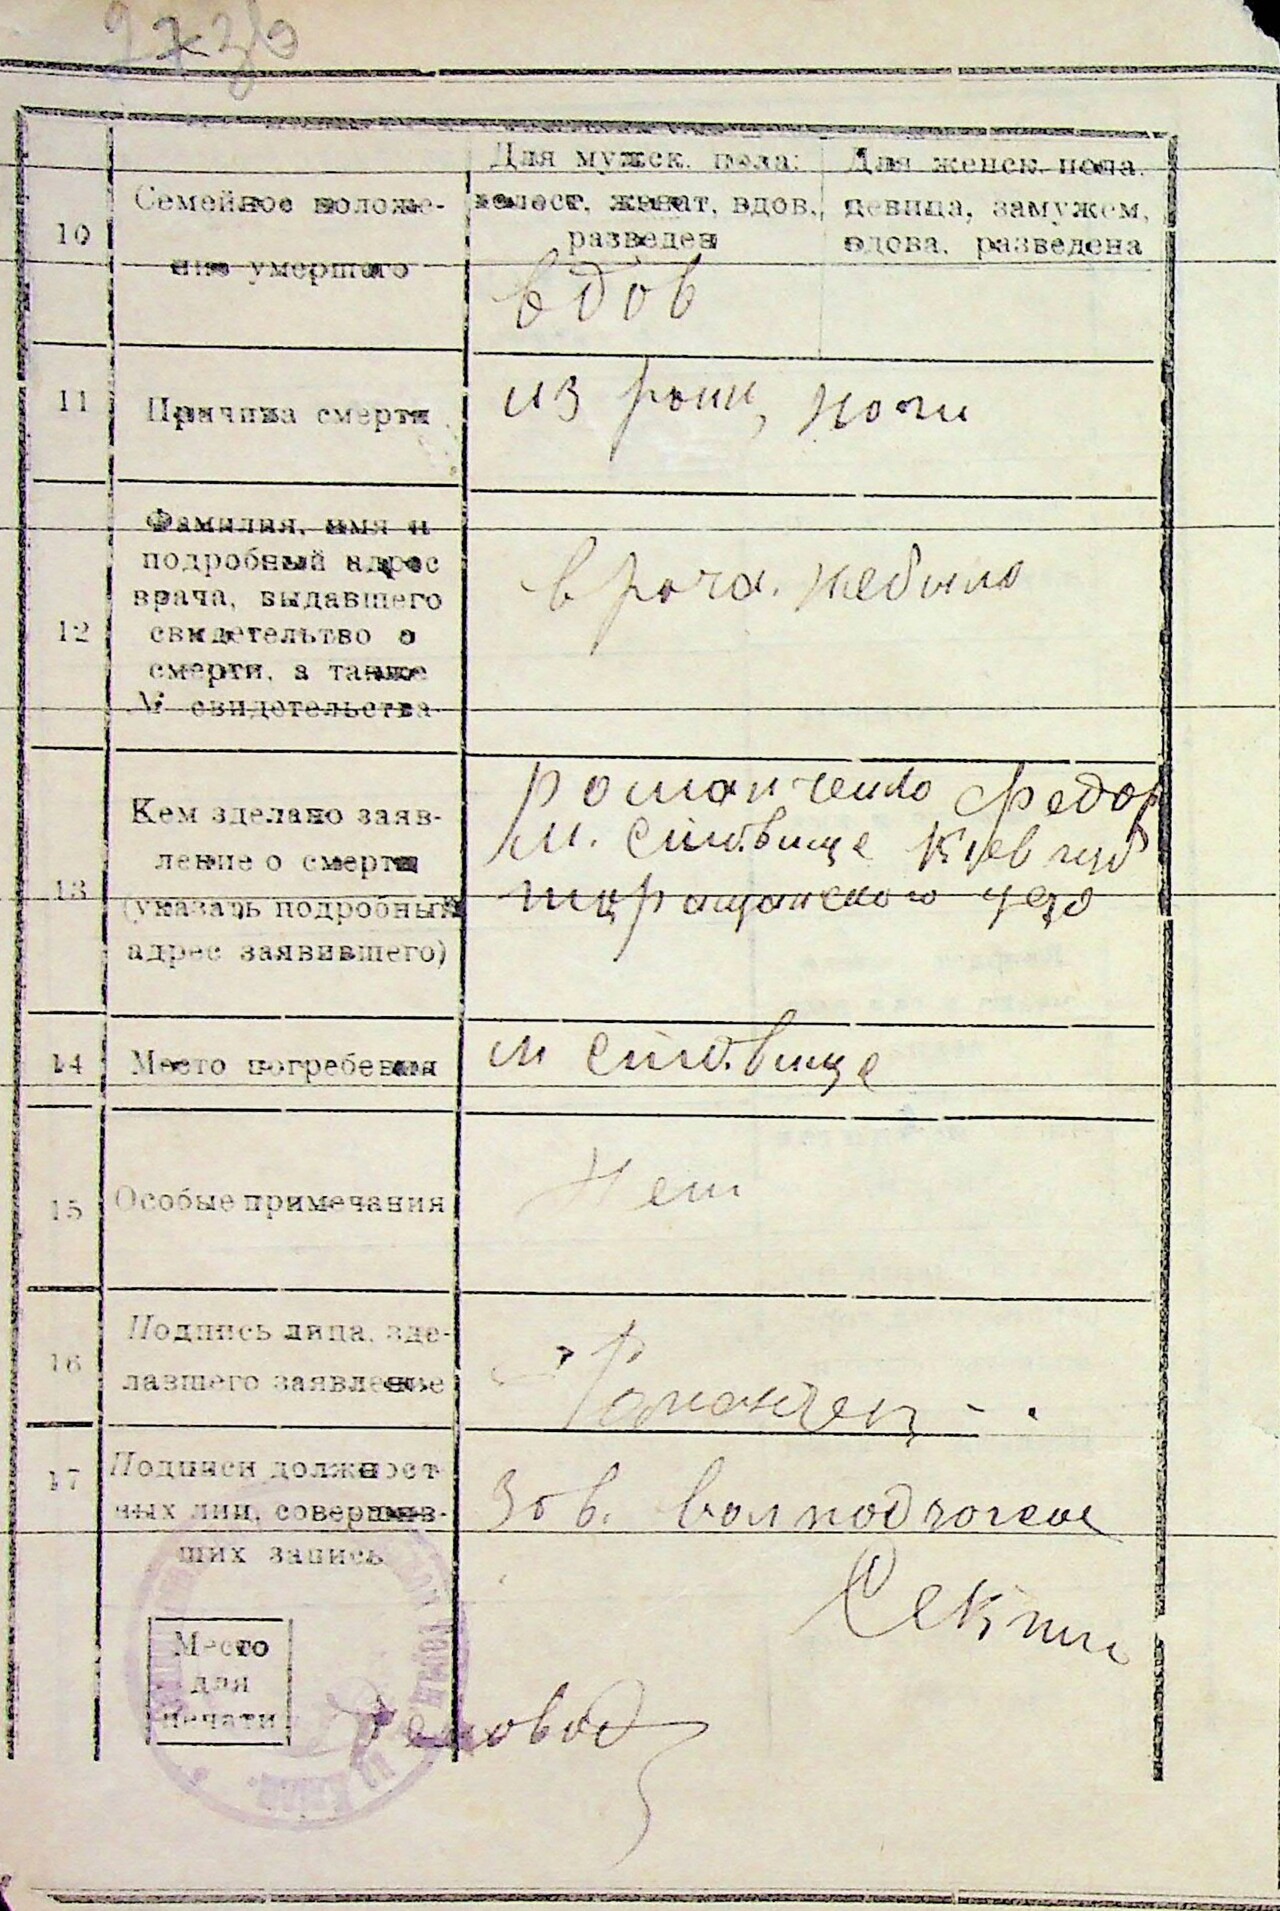 10
Семейное положе-
ние умершего
Для мужск. пола:
холост, женат, вдов.,
разведен
Для женск. пола.
девица, замужем,
вдова, разведена
вдов
11
Причина смерти
из ноги
12
Фамилия, имя и
подробный адрес
врача, выдавшего
свидетельтво о
смерти, а также
№ свидетельства
врача. небыло
13
Кем зделано заяв-
ление о смерти
(указать подробный
адрес заявившего)
Романченко Федор
м. Ставище Киев губ
Таращанского уезд
14
Место погребения
м Ставище
15
Особые примечания
Нет
16
Подпись лица, зде-
лавшего заявление
Романчен
17
Подписи должност-
ных лиц, совершив-
ших запись
Зав.
Место
для
печати